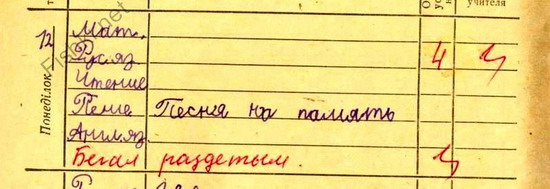 учителя
12
Понеділок
Мат.
Рус.яз.
4
Чтение
Пение Песня на память
Англ.яз.
Бегал раздетым.